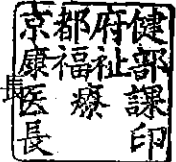 京都府健
康福祉部
医療課
長印
長